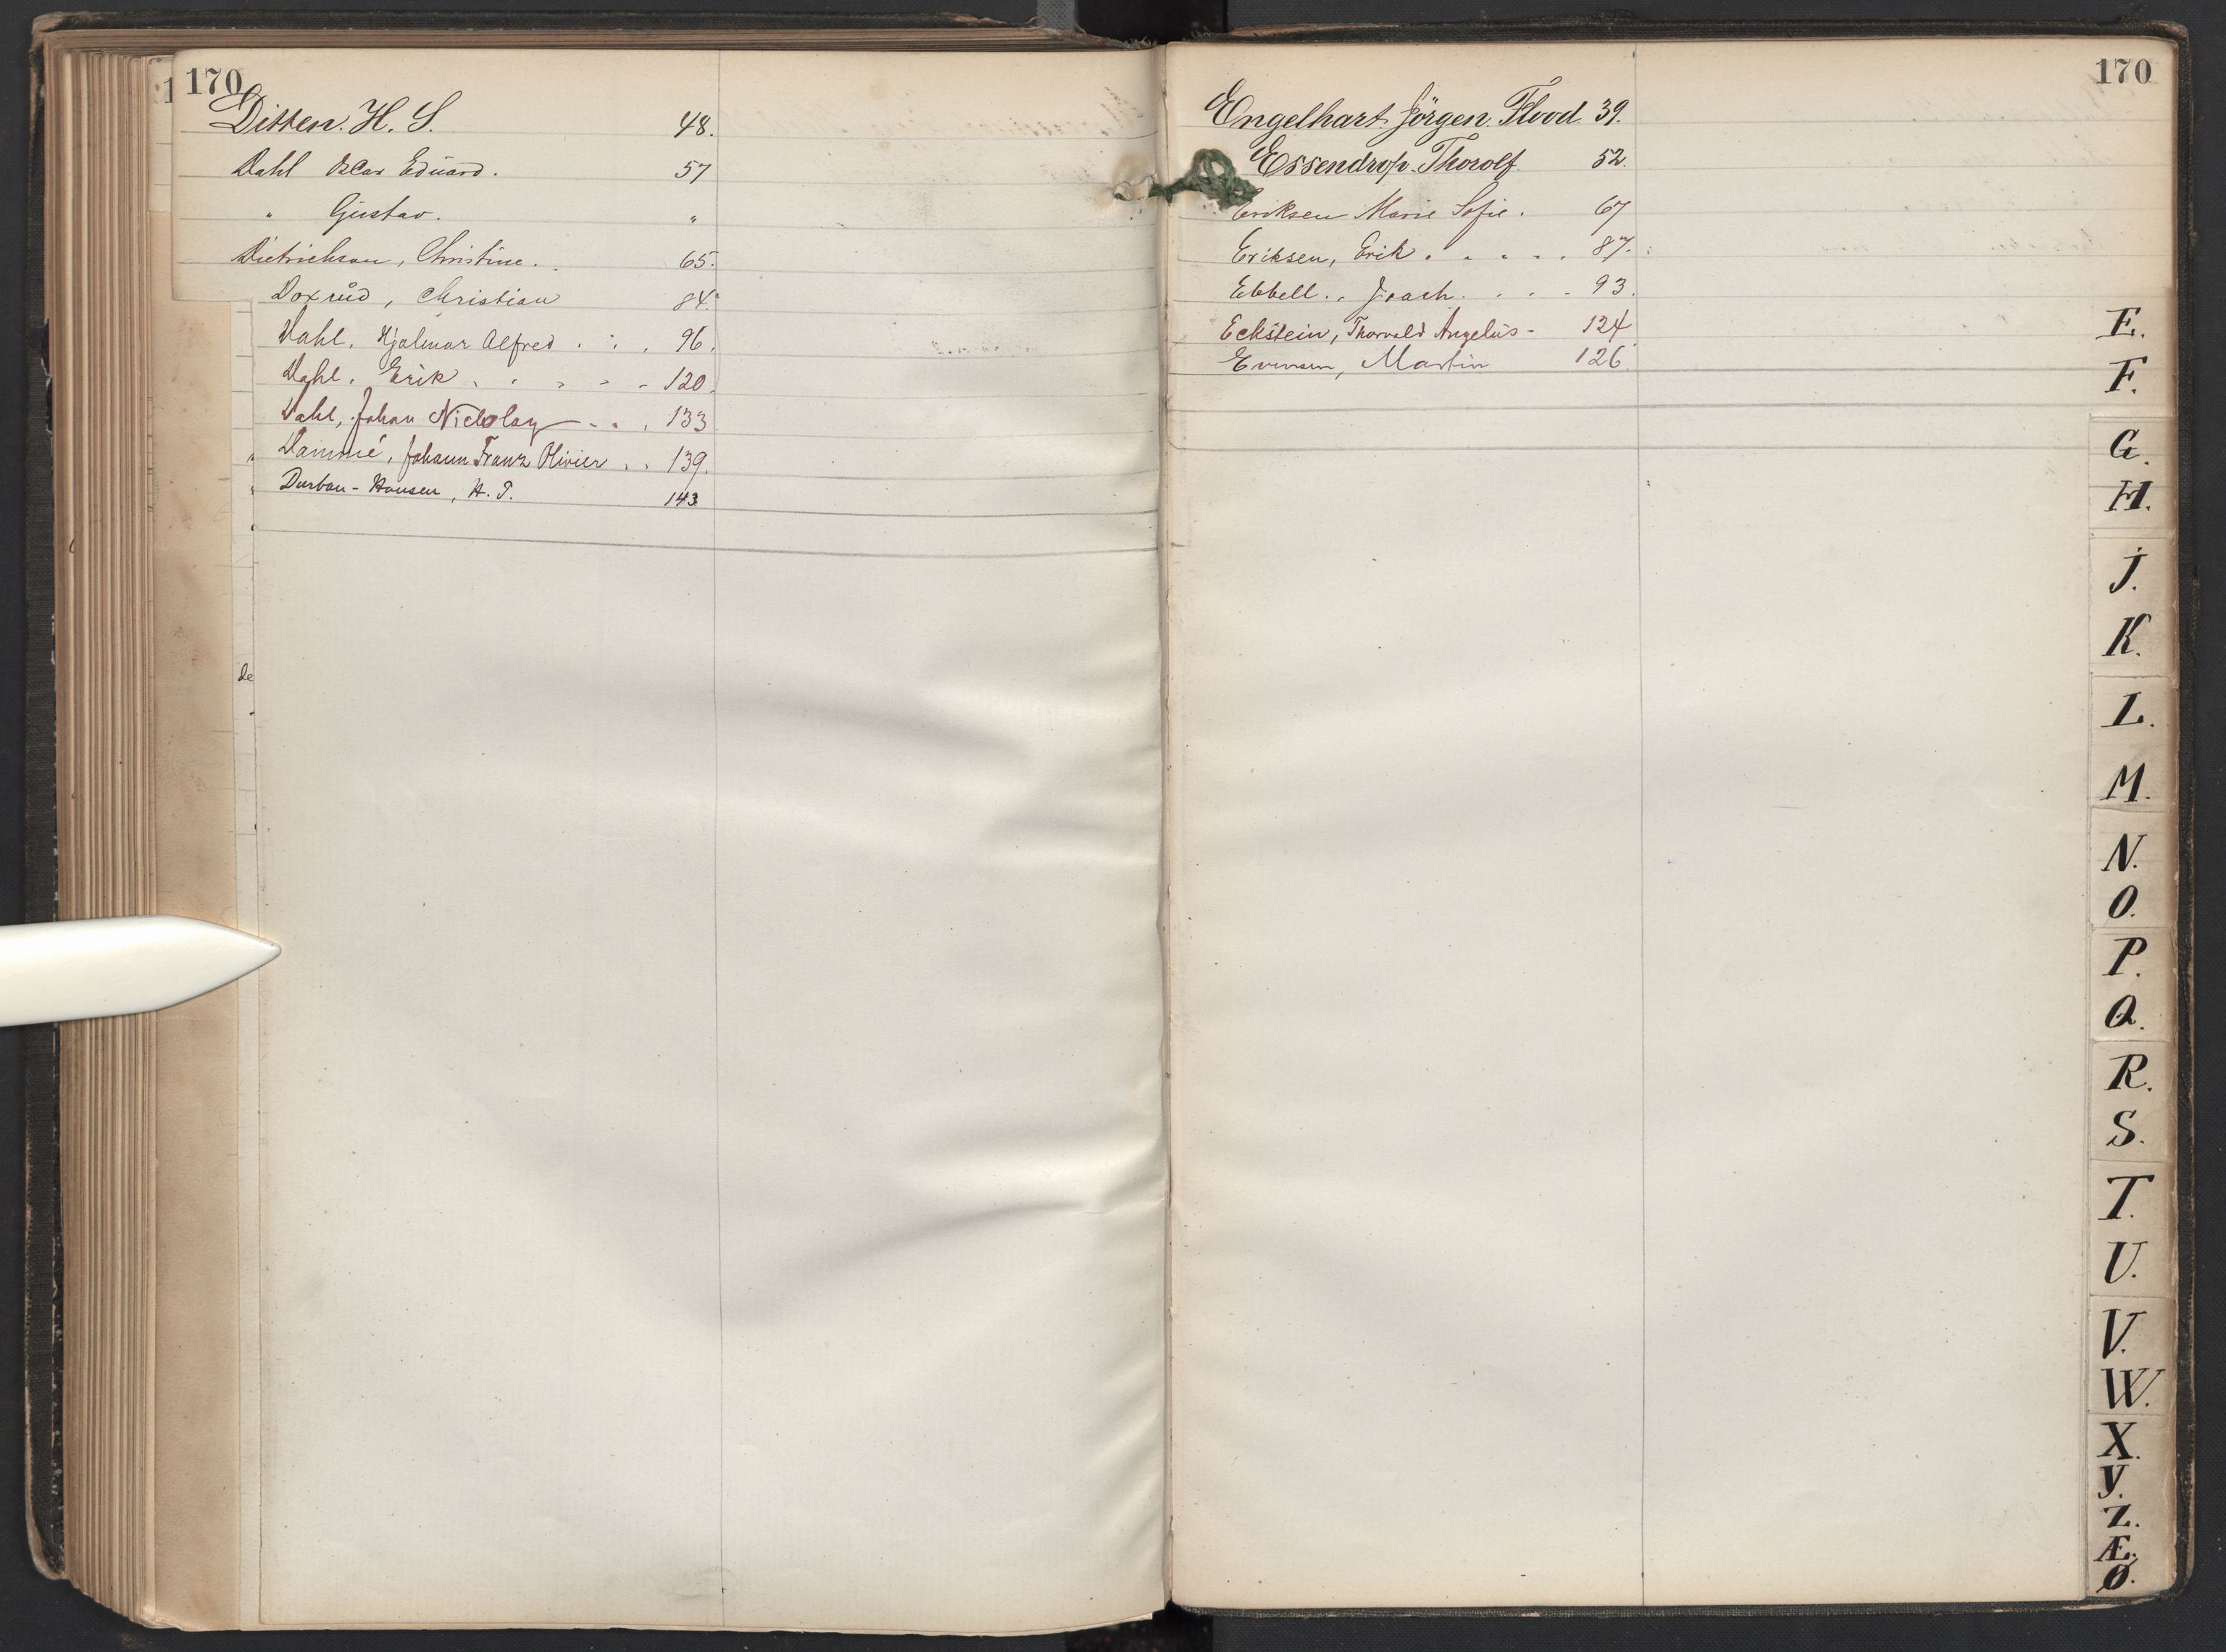 170
Ditten. H. S. 48.
Dahl Oscar Eduard. 57
" Gustav. "
Dietrichson, Christine. 65.
Doxrud, Christian 84.
Dahl. Hjalmar Alfred . . . 96.
Dahl. Erik . . . . . 120.
Dahl, Johan Nicolay . . . 133
Dammé, Johann Franz Olivier . . 139.
Durban-Hansen, H. P. 143
de
170
Engelhart. Jörgen. Flood. 39.
Essendrop. Thorolf. 52.
Eriksen Marie Sofie. 67
Eriksen, Erik . . . . . 87.
Ebbell. . . . . 93.
Eckstein, Thorvald Angelus - 124
Evensen, Martin 126.
E.
F.
G.
H.
J.
K.
L.
M.
N.
O.
P.
Q.
R.
S.
T.
U.
V.
W.
X.
Y.
Z.
Æ.
Ø.